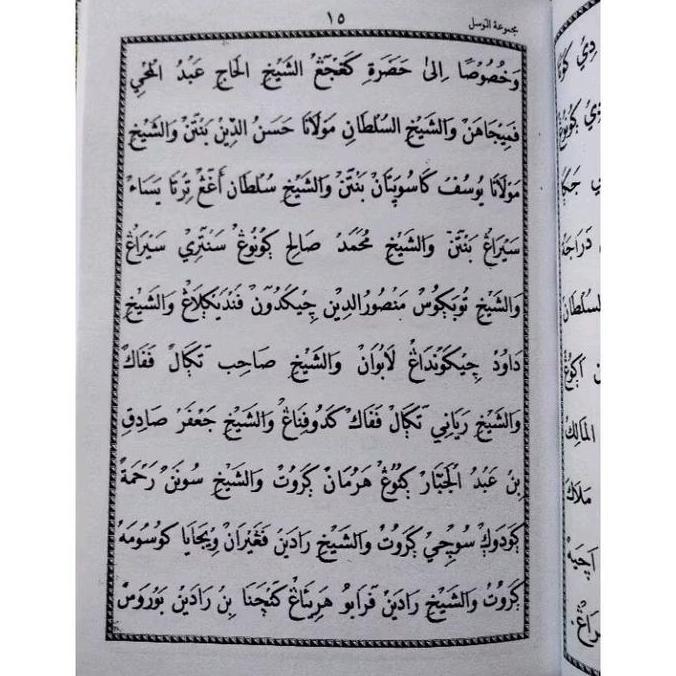 ١٥
مجموعة التوسل
وَخُصُوْصًا اِلىٰ حَضَرَةِ كَڠجڠْ الشَيْخِ الحَاجِ عَبْدُ المُحْيِ
فَمِيْجَاهَنْ وَالشَيْخِ السُلْطَانِ مَوْلَانَا حَسَنُ الدِيْنْ بَنْتَنْ وَالشَيْخِ
مَوْلَانَا يُوسُفْ كَاسُوپَتَانْ بَنْتَنْ وَالشَيْخِ سُلْطَان أَڠَڠْ تِرْتَا يَسَاءْ
سَيْرَاڠْ بَنْتَنْ وَالشَيْخِ مُحَمَدْ صَالِح ڮُونُوڠْ سَنْتَرِي سَيْرَاڠْ
وَالشَيْخِ تُوبَڮُوسْ مَنْصُورُالدِيْن چِيْكَدُوَنْ فَنْدَيْڮلَاڠْ وَالشَيْخِ
دَاوُدْ چِيْكَوْنْدَاڠْ لَابُوَانْ وَالشَيْخِ صَاحِب تَڮَالْ فَفَاكْ
وَالشَيْخِ رَبَانِي تَڮَالْ فَفَاكْ كَدُوفِنَاڠْ وَالشَيْخِ جَعْفَرْ صَادِقِ
بِنْ عَبْدُ الجَبَارْ ڮُنُوڠْ هَرُمَانْ ڮَرُوتْ وَالشَيْخِ سُونَنْ رَحْمَةْ
ڮَودَوڮْ سُوچِيْ ڮَرُوتْ وَالشَيْخِ رَادَيْن فَڠَيْرَانْ وِيْجَايَا كُوسُومَهْ
ڮَرُوتْ وَالشَيْخِ رَادَيْن فْرَابُو هَرِيْيَاڠْ كَنْچَنَا بِنْ رَادَيْن بَوْرَوسْ